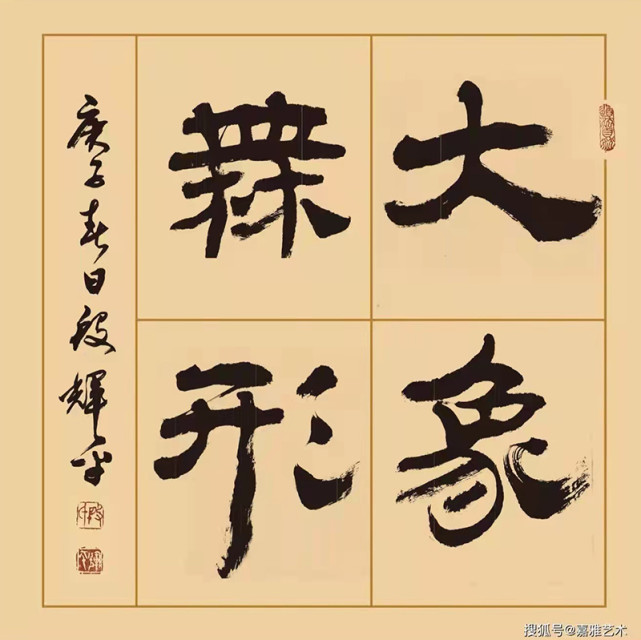 大象
無形
庚子春日段輝平
搜狐号@嘉雅艺术